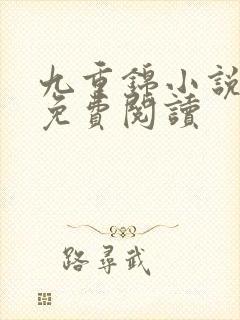 九重錦小說
免費閱讀
路尋武